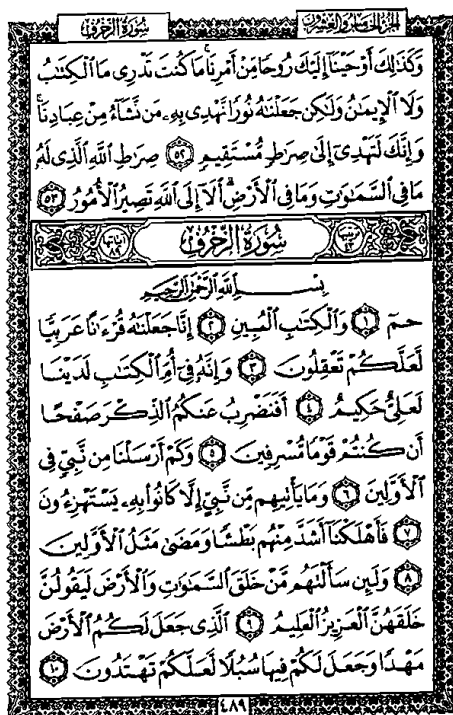 سُورَةُ الزُّخْرُفِ
الجُزءُ الخَامِسُ وَالعِشْرُونَ
وَكَذَٰلِكَ أَوْحَيْنَآ إِلَيْكَ رُوحًا مِّنْ أَمْرِنَا ۚ مَا كُنتَ تَدْرِى مَا ٱلْكِتَٰبُ
وَلَا ٱلْإِيمَٰنُ وَلَٰكِن جَعَلْنَٰهُ نُورًا نَّهْدِى بِهِۦ مَن نَّشَآءُ مِنْ عِبَادِنَا ۚ
وَإِنَّكَ لَتَهْدِىٓ إِلَىٰ صِرَٰطٍ مُّسْتَقِيمٍ ٥٢ صِرَٰطِ ٱللَّهِ ٱلَّذِى لَهُۥ
مَا فِى ٱلسَّمَٰوَٰتِ وَمَا فِى ٱلْأَرْضِ ۗ أَلَآ إِلَى ٱللَّهِ تَصِيرُ ٱلْأُمُورُ ٥٣
سُورَةُ الزُّخْرُفِ
آيَاتُهَا ٨٩
بِسْمِ ٱللَّهِ ٱلرَّحْمَٰنِ ٱلرَّحِيمِ
حمٓ ١ وَٱلْكِتَٰبِ ٱلْمُبِينِ ٢ إِنَّا جَعَلْنَٰهُ قُرْءَٰنًا عَرَبِيًّا
لَّعَلَّكُمْ تَعْقِلُونَ ٣ وَإِنَّهُۥ فِىٓ أُمِّ ٱلْكِتَٰبِ لَدَيْنَا
لَعَلِىٌّ حَكِيمٌ ٤ أَفَنَضْرِبُ عَنكُمُ ٱلذِّكْرَ صَفْحًا
أَن كُنتُمْ قَوْمًا مُّسْرِفِينَ ٥ وَكَمْ أَرْسَلْنَا مِن نَّبِىٍّ فِى
ٱلْأَوَّلِينَ ٦ وَمَا يَأْتِيهِم مِّن نَّبِىٍّ إِلَّا كَانُوا۟ بِهِۦ يَسْتَهْزِءُونَ
٧ فَأَهْلَكْنَآ أَشَدَّ مِنْهُم بَطْشًا وَمَضَىٰ مَثَلُ ٱلْأَوَّلِينَ
٨ وَلَئِن سَأَلْتَهُم مَّنْ خَلَقَ ٱلسَّمَٰوَٰتِ وَٱلْأَرْضَ لَيَقُولُنَّ
خَلَقَهُنَّ ٱلْعَزِيزُ ٱلْعَلِيمُ ٩ ٱلَّذِى جَعَلَ لَكُمُ ٱلْأَرْضَ
مَهْدًا وَجَعَلَ لَكُمْ فِيهَا سُبُلًا لَّعَلَّكُمْ تَهْتَدُونَ ١٠
٤٨٩